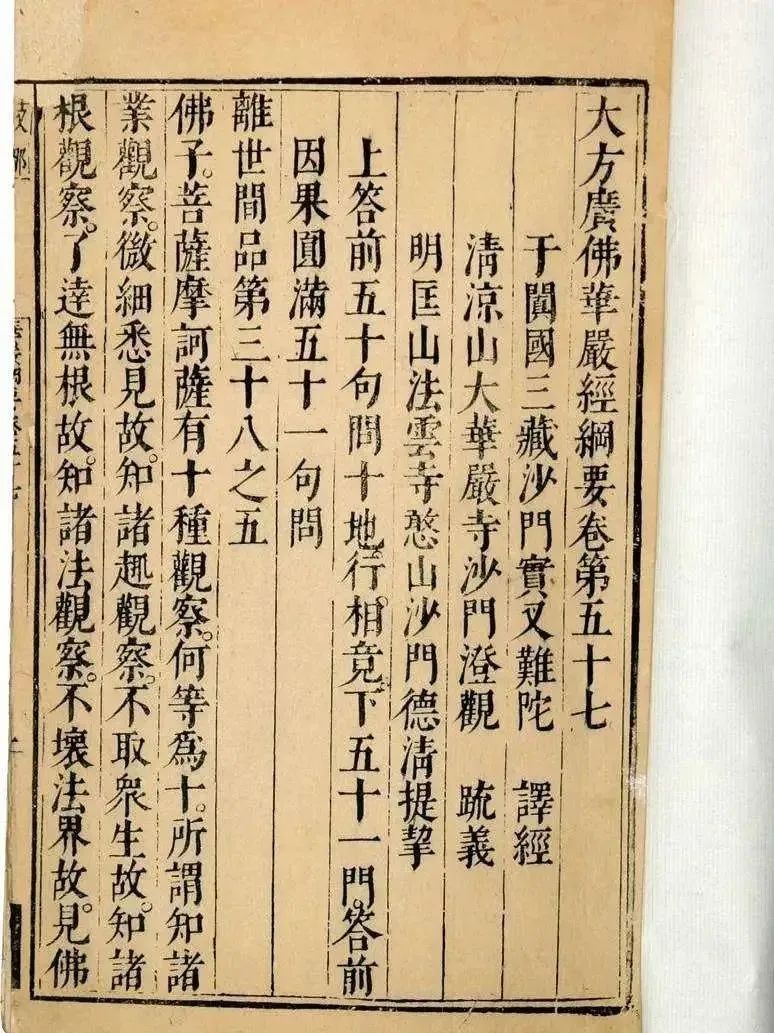 大方廣佛華嚴經綱要卷第五十七
于闐國三藏沙門實叉難陀　譯經
清凉山大華嚴寺沙門澄觀　䟽義
明匡山法雲寺憨山沙門德清提挈
上答前五十句問十地行相竟下五十一門答前
因果圓滿五十一句問
離世間品第三十八之五
佛子。菩薩摩訶薩有十種觀察。何等爲十。所謂知諸
業觀察。微細悉見故。知諸趣觀察。不取衆生故。知諸
根觀察。了達無根故。知諸法觀察。不壞法界故。見佛